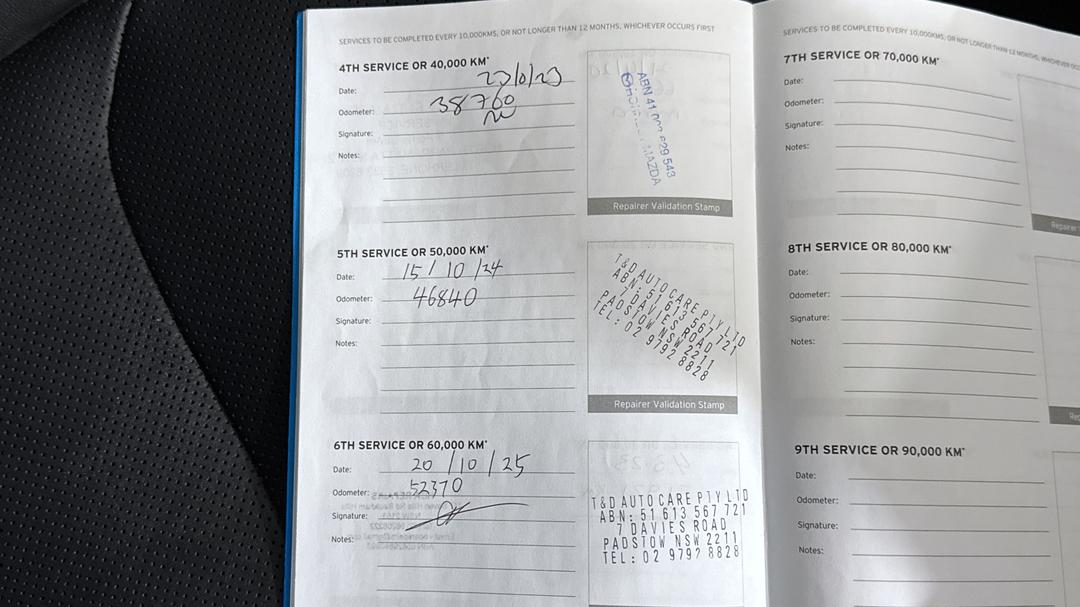 SERVICES TO BE COMPLETED EVERY 10,000KMS, OR NOT LONGER THAN 12 MONTHS, WHICHEVER OCCURS FIRST
4TH SERVICE OR 40,000 KM*
Date:
Odometer: 38760
Signature:
Notes:
ABN 41 629 543
MAZDA
Repairer Validation Stamp
5TH SERVICE OR 50,000 KM*
Date: 15/10/24
Odometer: 46840
Signature:
Notes:
T&D AUTO CARE PTY LTD
ABN: 51 613 567 721
7 DAVIES ROAD
PADSTOW NSW 2211
TEL: 02 9792 8828
Repairer Validation Stamp
6TH SERVICE OR 60,000 KM*
Date: 20/10/25
Odometer: 52370
Signature:
Notes:
T&D AUTO CARE PTY LTD
ABN: 51 613 567 721
7 DAVIES ROAD
PADSTOW NSW 2211
TEL: 02 9792 8828
SERVICES TO BE COMPLETED EVERY 10,000KMS, OR NOT LONGER THAN 12 MONTHS, WHICHEVER
7TH SERVICE OR 70,000 KM*
Date:
Odometer:
Signature:
Notes:
Repairer
8TH SERVICE OR 80,000 KM*
Date:
Odometer:
Signature:
Notes:
9TH SERVICE OR 90,000 KM*
Date:
Odometer:
Signature:
Notes: